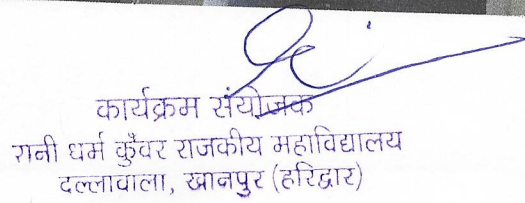 कार्यक्रम संयोजक
रानी धर्म कुँवर राजकीय महाविद्यालय
दल्लावाला, खानपुर (हरिद्वार)